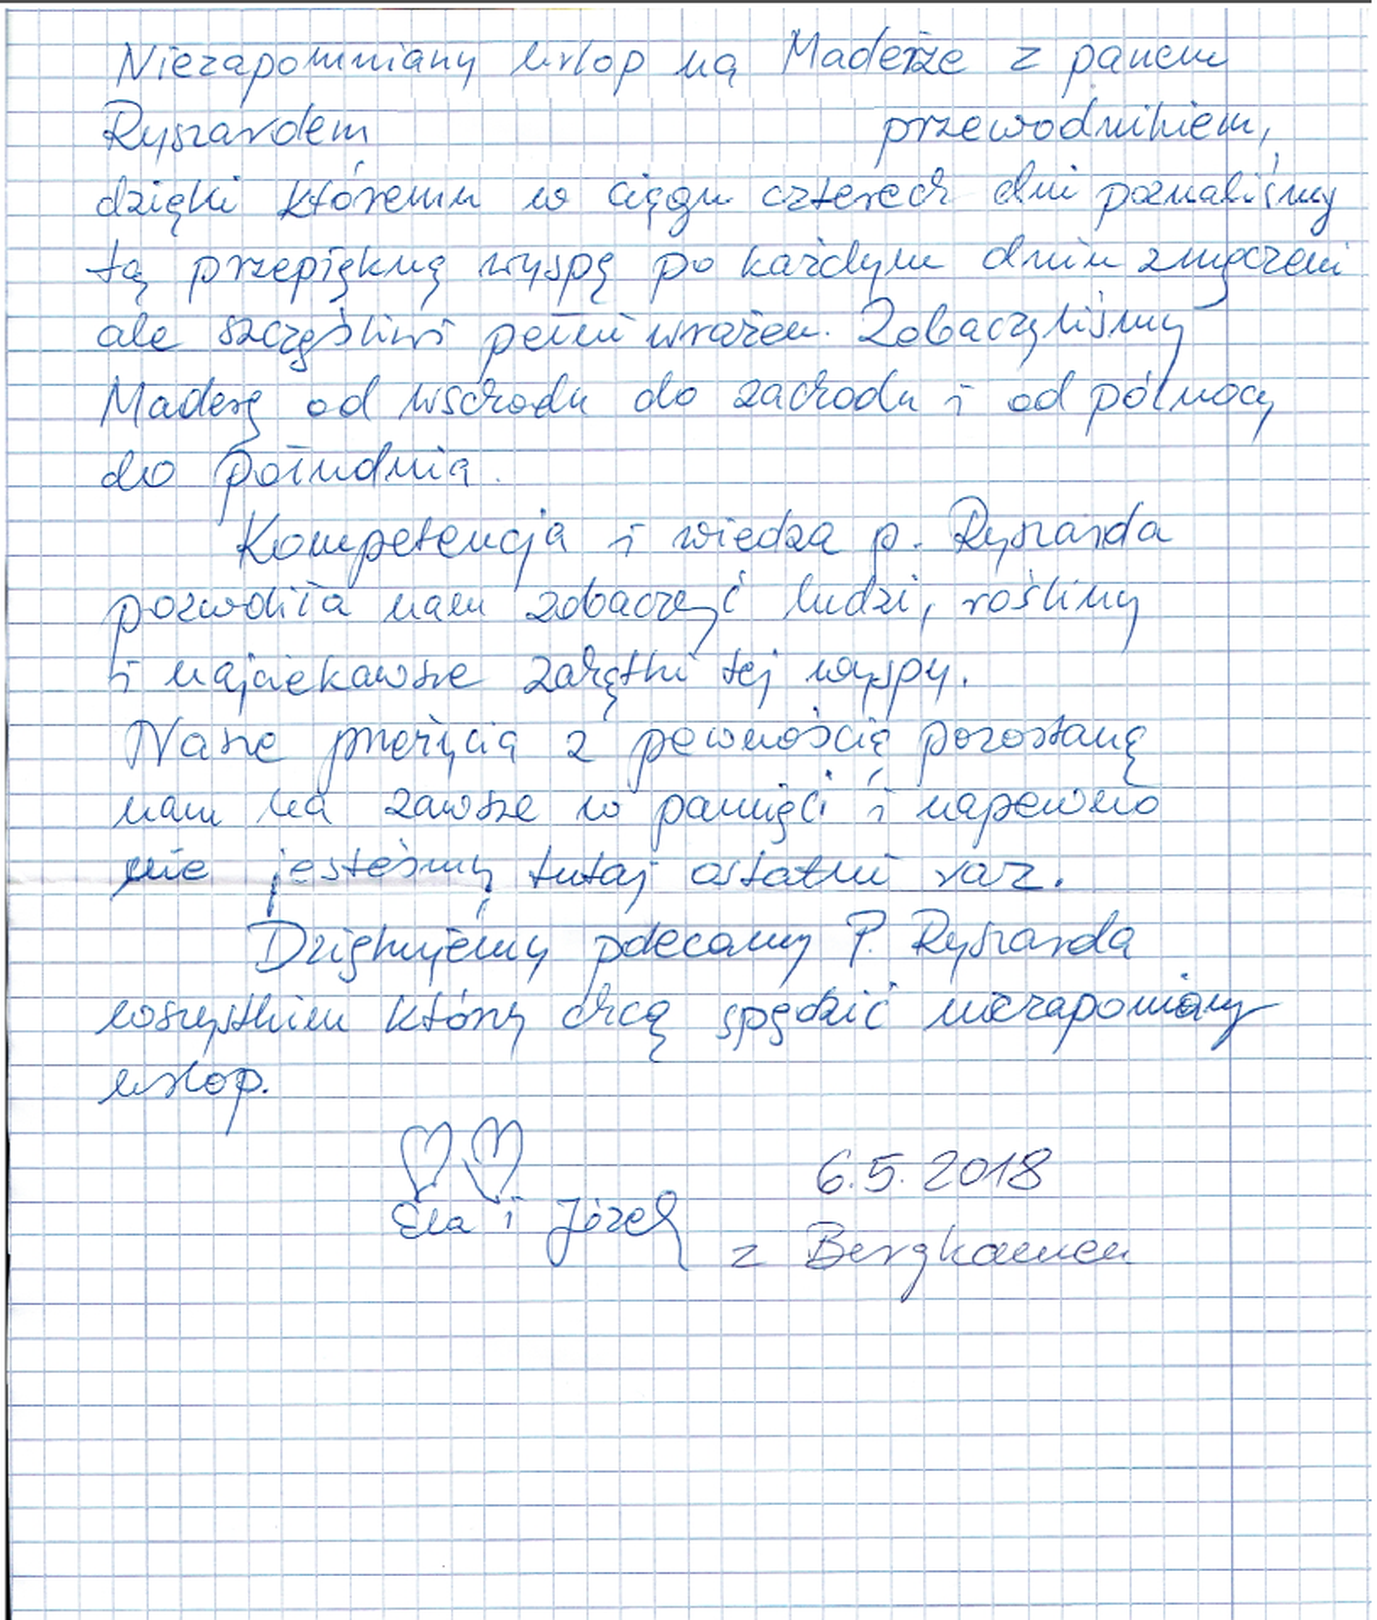 Niezapomniany urlop na Maderze z panem
Ryszardem przewodnikiem,
dzięki któremu w ciągu czterech dni poznaliśmy
tą przepiękną wyspę po każdym dniu zmęczeni
ale szczęśliwi pełni wrażeń. Zobaczyliśmy
Maderę od wschodu do zachodu i od północy
do południa.
Kompetencja i wiedza p. Ryszarda
pozwoliła nam zobaczyć ludzi, rośliny
i najciekawsze zakątki tej wyspy.
Nasze przeżycia z pewnością pozostaną
nam na zawsze w pamięci i napewno
nie jesteśmy tutaj ostatni raz.
Dziękujemy polecamy P. Ryszarda
wszystkim którzy chcą spędzić niezapomiany
urlop.
6.5.2018
Ela i Józek z Bergkamen